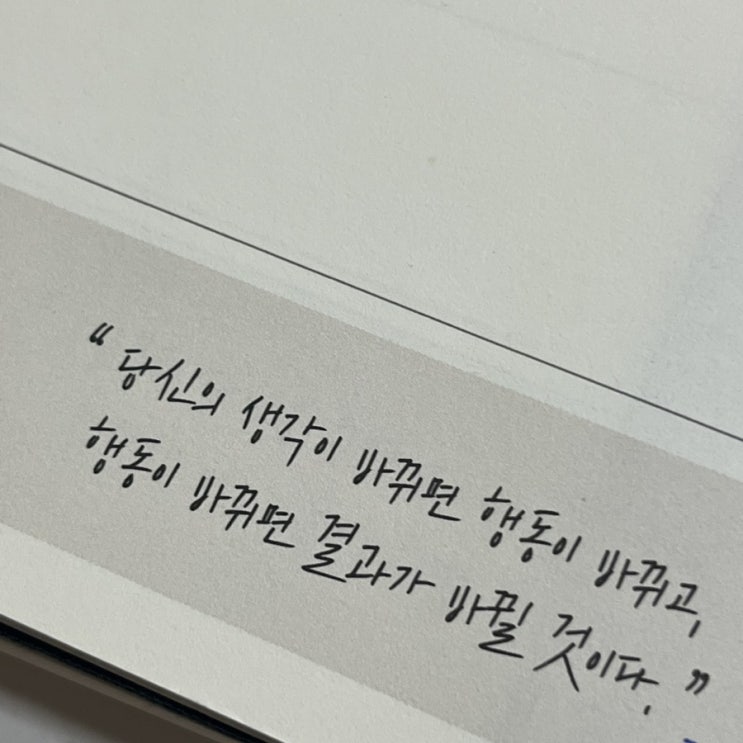 “당신의 생각이 바뀌면 행동이 바뀌고,
행동이 바뀌면 결과가 바뀔 것이다.”